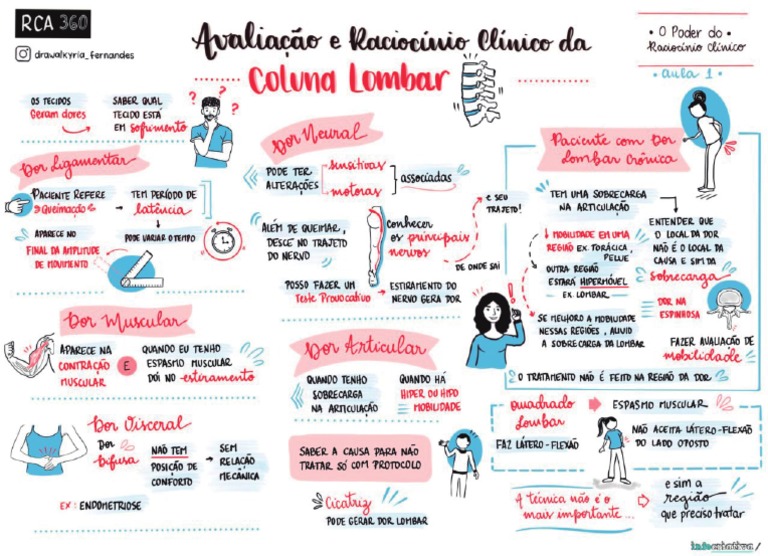 RCA 360
drawalkyria_fernandes
Avaliação e Raciocínio Clínico da
Coluna Lombar
• O Poder do •
Raciocínio Clínico
• aula 1 •
OS TECIDOS
Geram dores
SABER QUAL
TECIDO ESTÁ
EM sofrimento
? ? ?
Dor Ligamentar
PACIENTE REFERE
Queimação
TEM PERÍODO DE
latência
PODE VARIAR O TEMPO
APARECE NO
FINAL DA AMPLITUDE
DE MOVIMENTO
Dor Muscular
APARECE NA
CONTRAÇÃO
MUSCULAR
E
QUANDO EU TENHO
ESPASMO MUSCULAR
DÓI NO estiramento
Dor Visceral
Dor
Difusa
NÃO TEM
POSIÇÃO DE
CONFORTO
SEM
RELAÇÃO
MECÂNICA
EX: ENDOMETRIOSE
Dor Neural
PODE TER
ALTERAÇÕES
sensitivas
motoras
associadas
ALÉM DE QUEIMAR,
DESCE NO TRAJETO
DO NERVO
conhecer
os principais
nervos
e SEU
TRAJETO!
DE ONDE SAI
POSSO FAZER UM
Teste Provocativo
ESTIRAMENTO DO
NERVO GERA DOR
Dor Articular
QUANDO TENHO
SOBRECARGA
NA ARTICULAÇÃO
QUANDO HÁ
HIPER OU HIPO
MOBILIDADE
SABER A CAUSA PARA NÃO
TRATAR SÓ COM PROTOCOLO
Cicatriz
PODE GERAR DOR LOMBAR
Paciente com Dor
Lombar Crônica
TEM UMA SOBRECARGA
NA ARTICULAÇÃO
↓ MOBILIDADE EM UMA
REGIÃO EX. TORÁCICA,
PELVE
OUTRA REGIÃO
ESTARÁ HIPERMÓVEL
EX. LOMBAR
SE MELHORO A MOBILIDADE
NESSAS REGIÕES, ALIVIO
A SOBRECARGA DA LOMBAR
ENTENDER QUE
O LOCAL DA DOR
NÃO É O LOCAL DA
CAUSA E SIM DA
sobrecarga
DOR NA
ESPINHOSA
FAZER AVALIAÇÃO DE
mobilidade
O TRATAMENTO NÃO É FEITO NA REGIÃO DA DOR
quadrado
lombar
FAZ LÁTERO-FLEXÃO
ESPASMO MUSCULAR
NÃO ACEITA LÁTERO-FLEXÃO
DO LADO OPOSTO
A técnica não é o
mais importante...
e sim a
região
que preciso tratar
infocriativa/